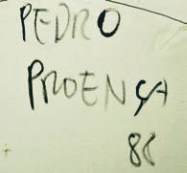 PEDRO
PROENÇA